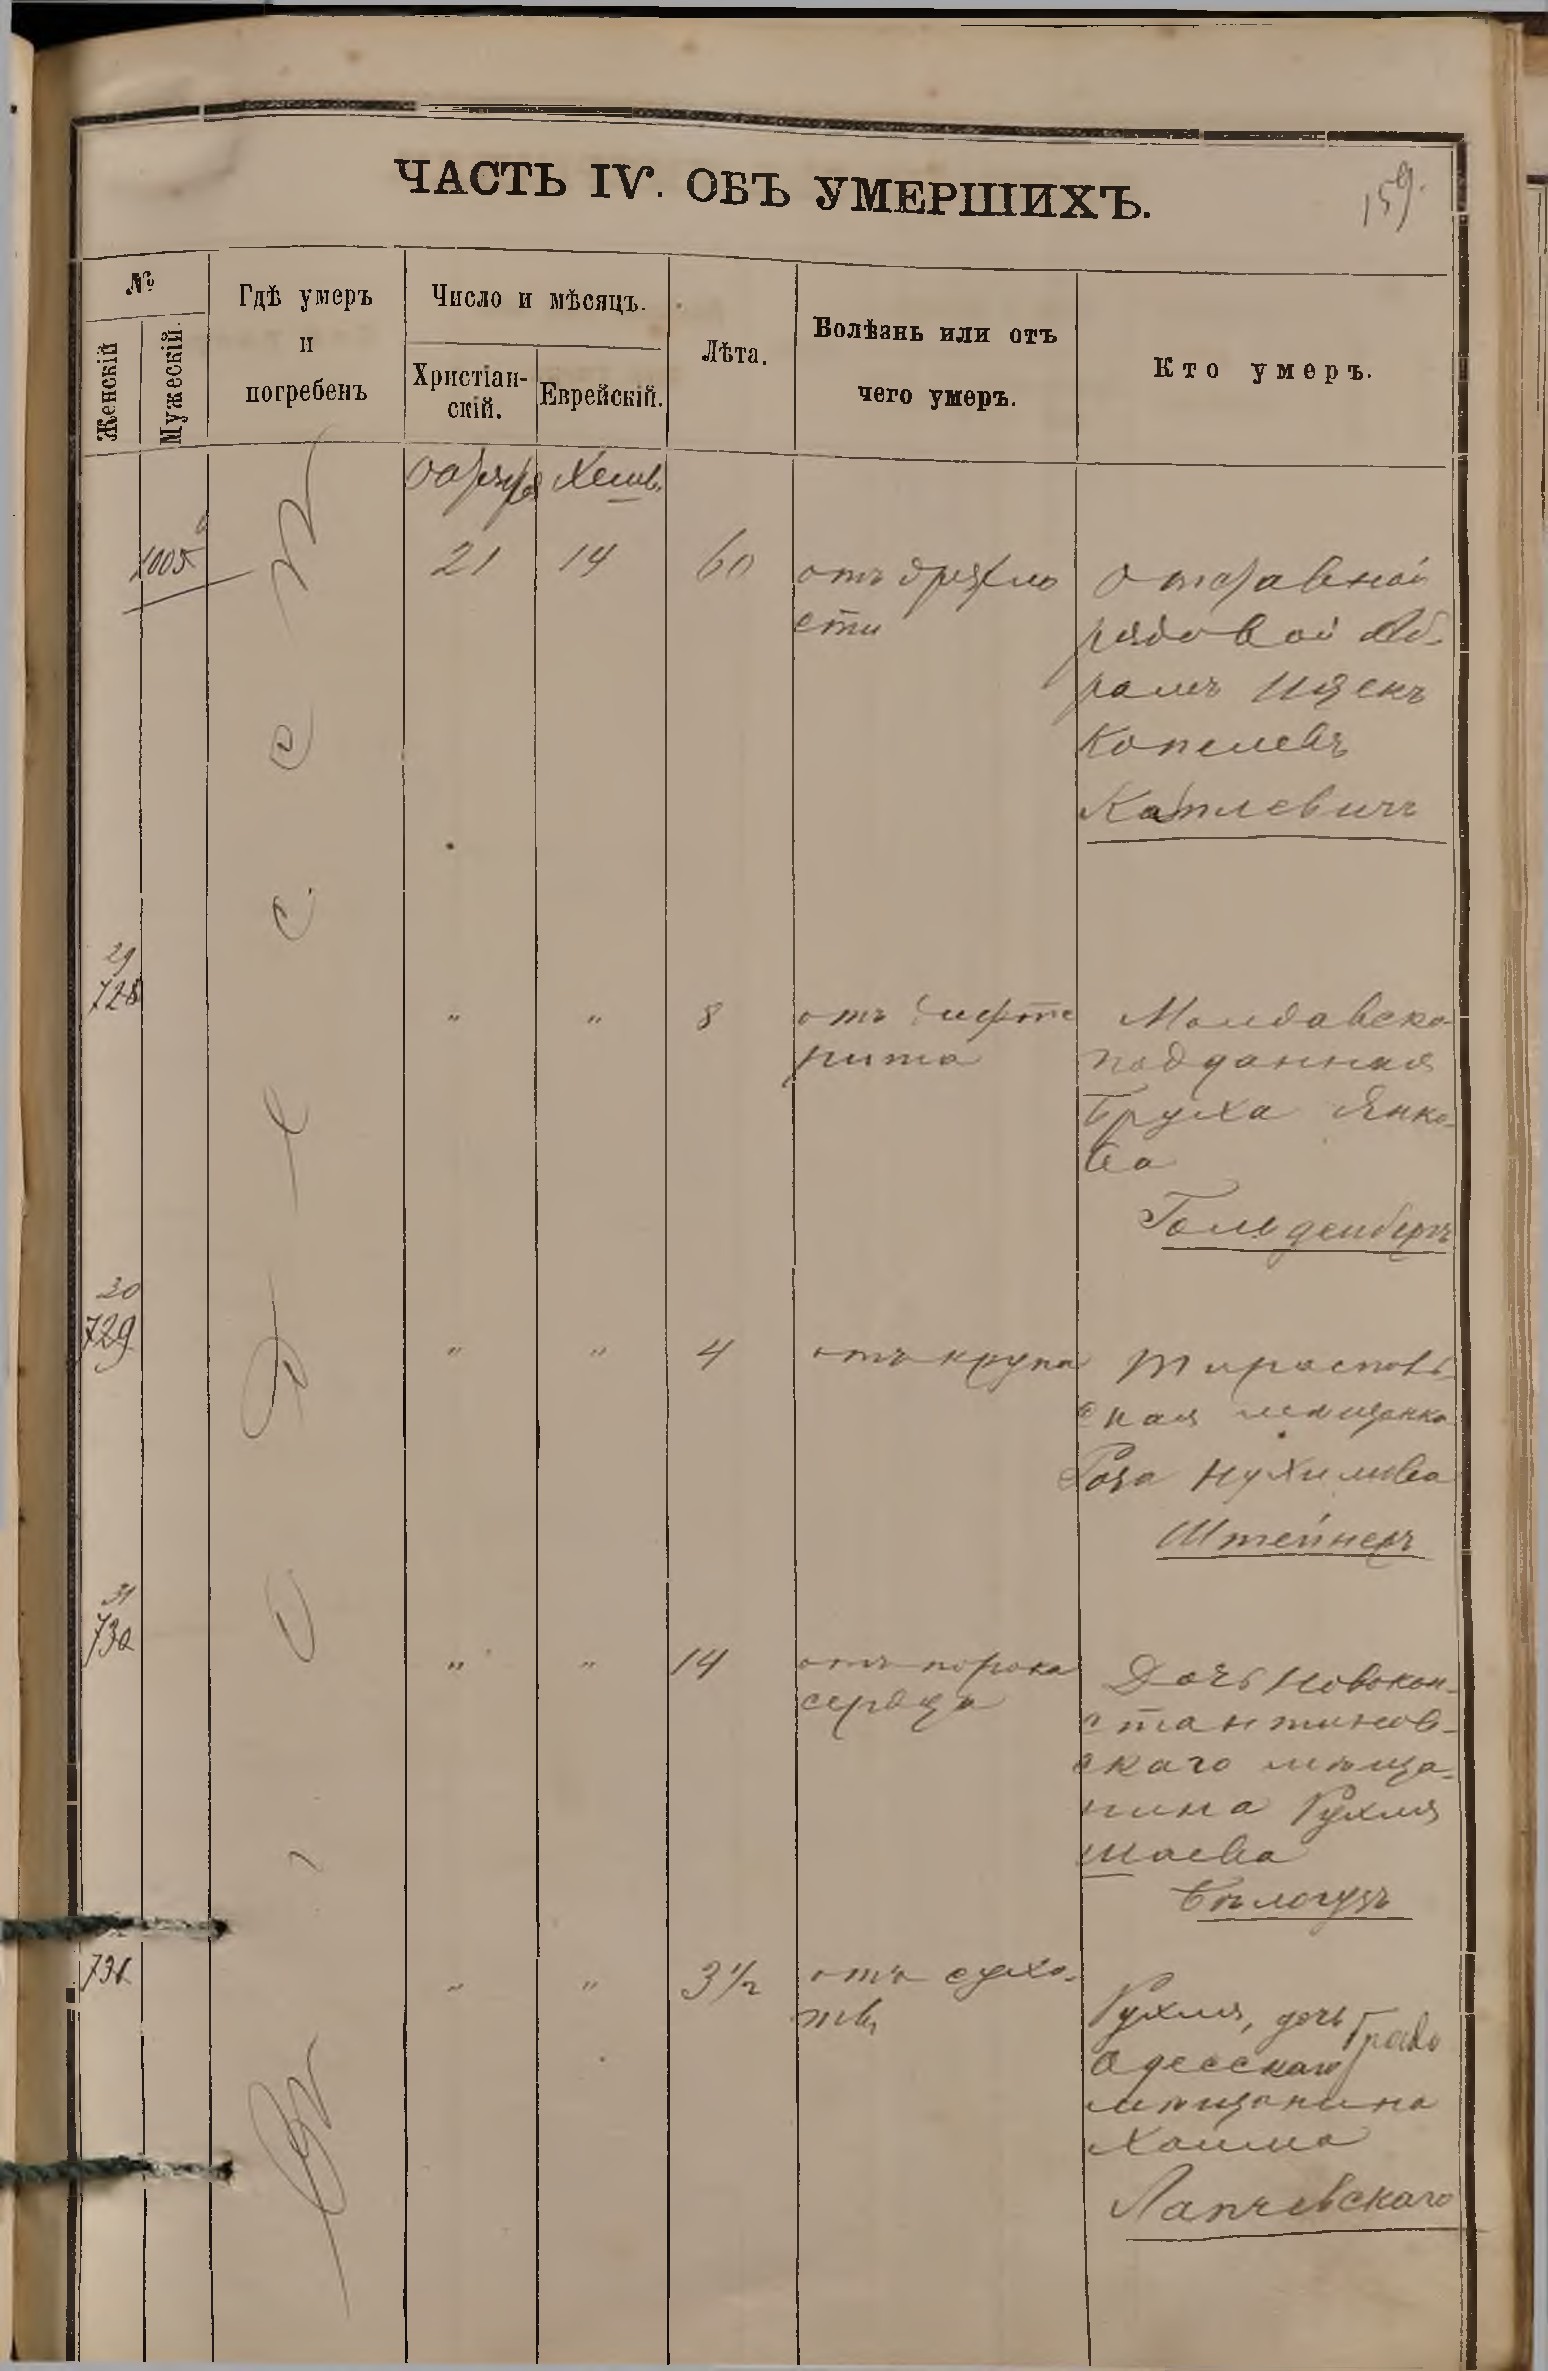 ЧАСТЬ IV. ОБЪ УМЕРШИХЪ.
159.
№
Женскій
Мужескій.
Гдѣ умеръ
и
погребенъ
Число и мѣсяцъ.
Христіан-
скій.
Еврейскій.
Лѣта.
Болѣзнь или отъ
чего умеръ.
Кто умеръ.
Въ Одессѣ
Хешв.
1005
21
14
60
отъ дряхло
сти
отставной
рядовой Аб-
рамъ Ицекъ
Копелевъ
29
728
"
"
8
отъ дифте
рита
Молдавско
подданная
Бруха Янке-
ва
Гольденбергъ
30
729
"
"
4
отъ крупа
Тираспол-
ская мещанка
Роза Нухимова
Штейнеръ
31
730
"
"
14
отъ порока
сердца
Дочь Новокон-
стантинов-
скаго мѣща-
нина Рухля
Шаева
Бѣлогузъ
731
"
"
3 ½
отъ сухо-
тки
Рухля, дочь
Одесскаго
мѣщанина
Хаима
Лапчевскаго